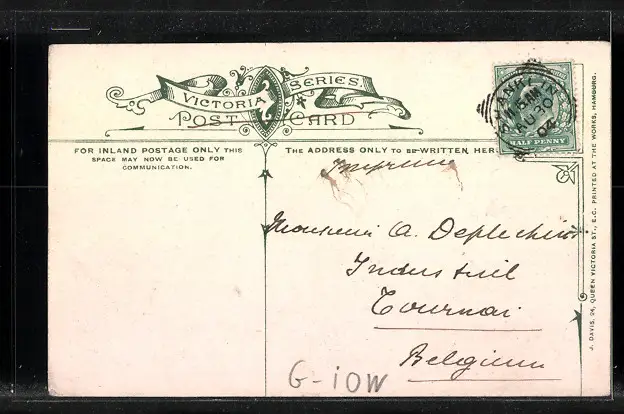 VICTORIA SERIES
POST CARD
FOR INLAND POSTAGE ONLY THIS
SPACE MAY NOW BE USED FOR
COMMUNICATION.
THE ADDRESS ONLY TO BE WRITTEN HERE
SHANKLIN
11 AM
AU 30
04
HALF PENNY
Imprimé
Monsieur A. Deplechin
Industriel
Tournai
Belgium
G-IOW
J. DAVIS, 24, QUEEN VICTORIA ST., E.C. PRINTED AT THE WORKS, HAMBURG.